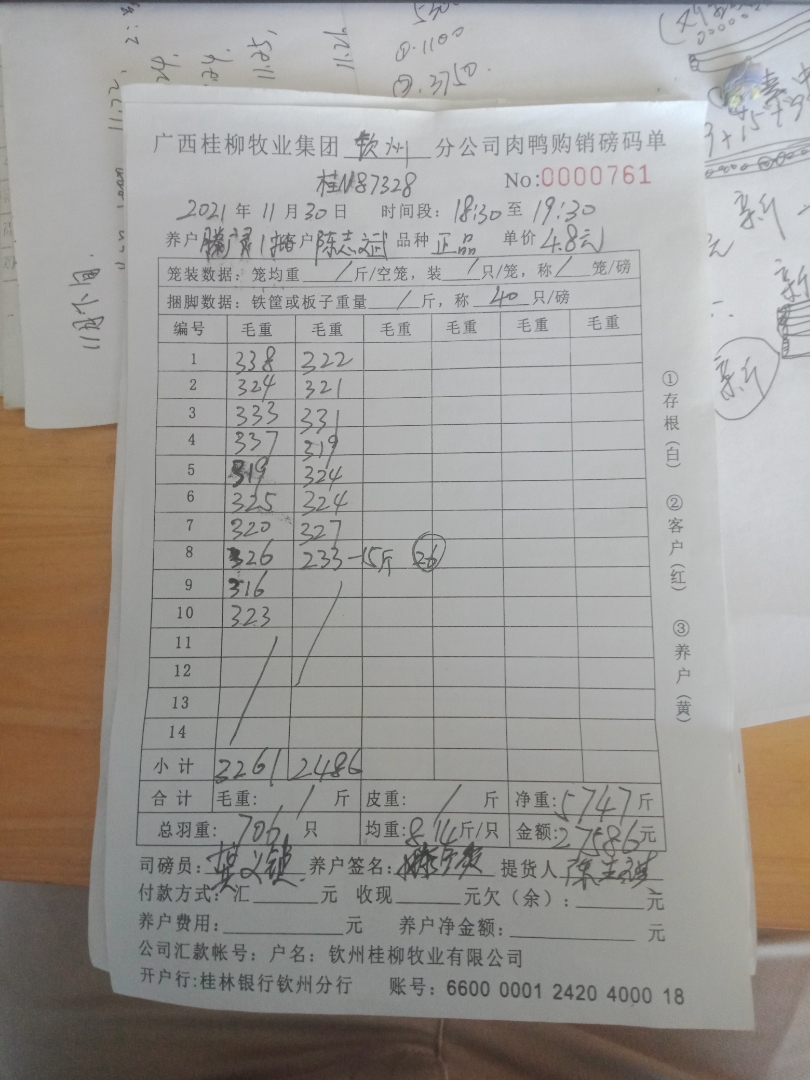 11.25
①.1100
②.3750.
广西桂柳牧业集团 钦州 分公司肉鸭购销磅码单
桂N87328 No:0000761
2021 年 11 月 30 日 时间段: 18:30 至 19:30
养户 户 陈志斌 品种 正品 单价 4.8元
笼装数据: 笼均重 / 斤/空笼, 装 / 只/笼, 称 / 笼/磅
捆脚数据: 铁筐或板子重量 / 斤, 称 40 只/磅
编号 毛重 毛重 毛重 毛重 毛重 毛重
1 338 322
2 324 321
3 333 331
4 337 319
5 319 324
6 325 324
7 320 327
8 326 233-15斤 26
9 316
10 323
11
12
13
14
小计 3261 2486
合计 毛重: / 斤 皮重: / 斤 净重: 5747 斤
总羽重: 706 只 均重: 8.14 斤/只 金额: 27586 元
司磅员: 养户签名: 提货人
付款方式: 汇 元 收现 元欠(余): 元
养户费用: 元 养户净金额: 元
公司汇款帐号: 户名: 钦州桂柳牧业有限公司
开户行:桂林银行钦州分行 账号: 6600 0001 2420 4000 18
①存根(白) ②客户(红) ③养户(黄)